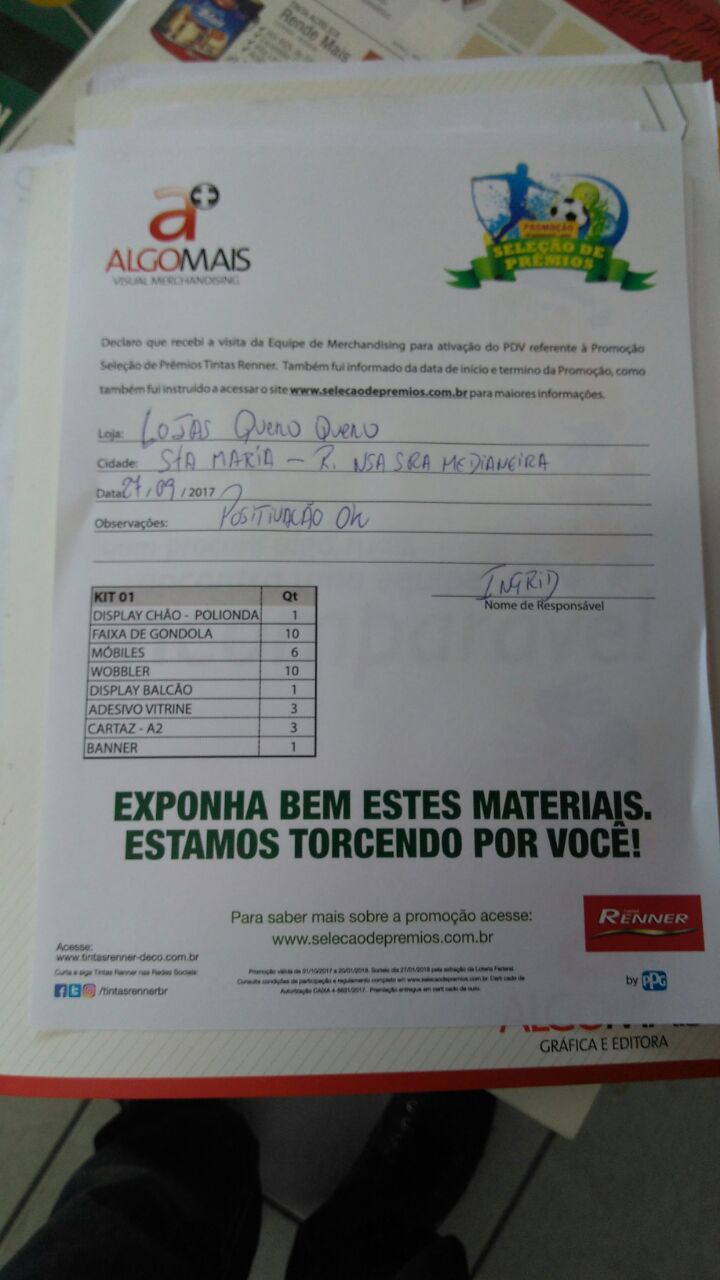 Rende Mais
a+
ALGOMAIS
VISUAL MERCHANDISING
PROMOÇÃO
SELEÇÃO DE
PRÊMIOS
Declaro que recebi a visita da Equipe de Merchandising para ativação do PDV referente à Promoção
Seleção de Prêmios Tintas Renner. Também fui informado da data de inicio e termino da Promoção, como
também fui instruído a acessar o site www.selecaodepremios.com.br para maiores informações.
Loja: LOJAS QUERO QUERO
Cidade: STA MARIA - R. NSA SRA MEDIANEIRA
Data: 27/09/2017
Observações: POSITIVAÇÃO OK
INGRID
Nome de Responsável
KIT 01 Qt
DISPLAY CHÃO - POLIONDA 1
FAIXA DE GONDOLA 10
MÓBILES 6
WOBBLER 10
DISPLAY BALCÃO 1
ADESIVO VITRINE 3
CARTAZ - A2 3
BANNER 1
EXPONHA BEM ESTES MATERIAIS.
ESTAMOS TORCENDO POR VOCÊ!
Para saber mais sobre a promoção acesse:
www.selecaodepremios.com.br
RENNER
Acesse:
www.tintasrenner-deco.com.br
Curta e siga Tintas Renner nas Redes Sociais:
/tintasrennerbr
Promoção válida de 01/10/2017 a 20/01/2018. Sorteio dia 27/01/2018 pela extração da Loteria Federal.
Consulte condições de participação e regulamento completo em www.selecaodepremios.com.br Certificado de
Autorização CAIXA 4-5691/2017. Premiação entregue em certificado de ouro.
by PPG
GRÁFICA E EDITORA